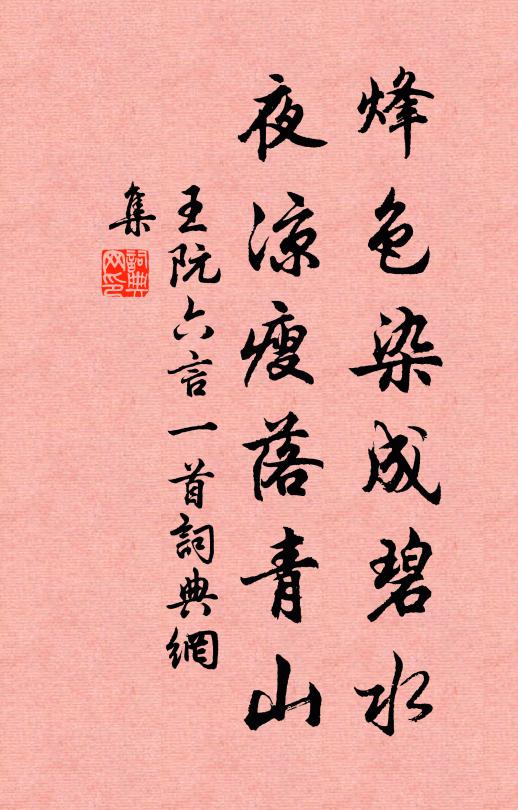 烽色染成碧水
夜涼瘦落青山
王阮六言一首詞典網
集
詞典
网印